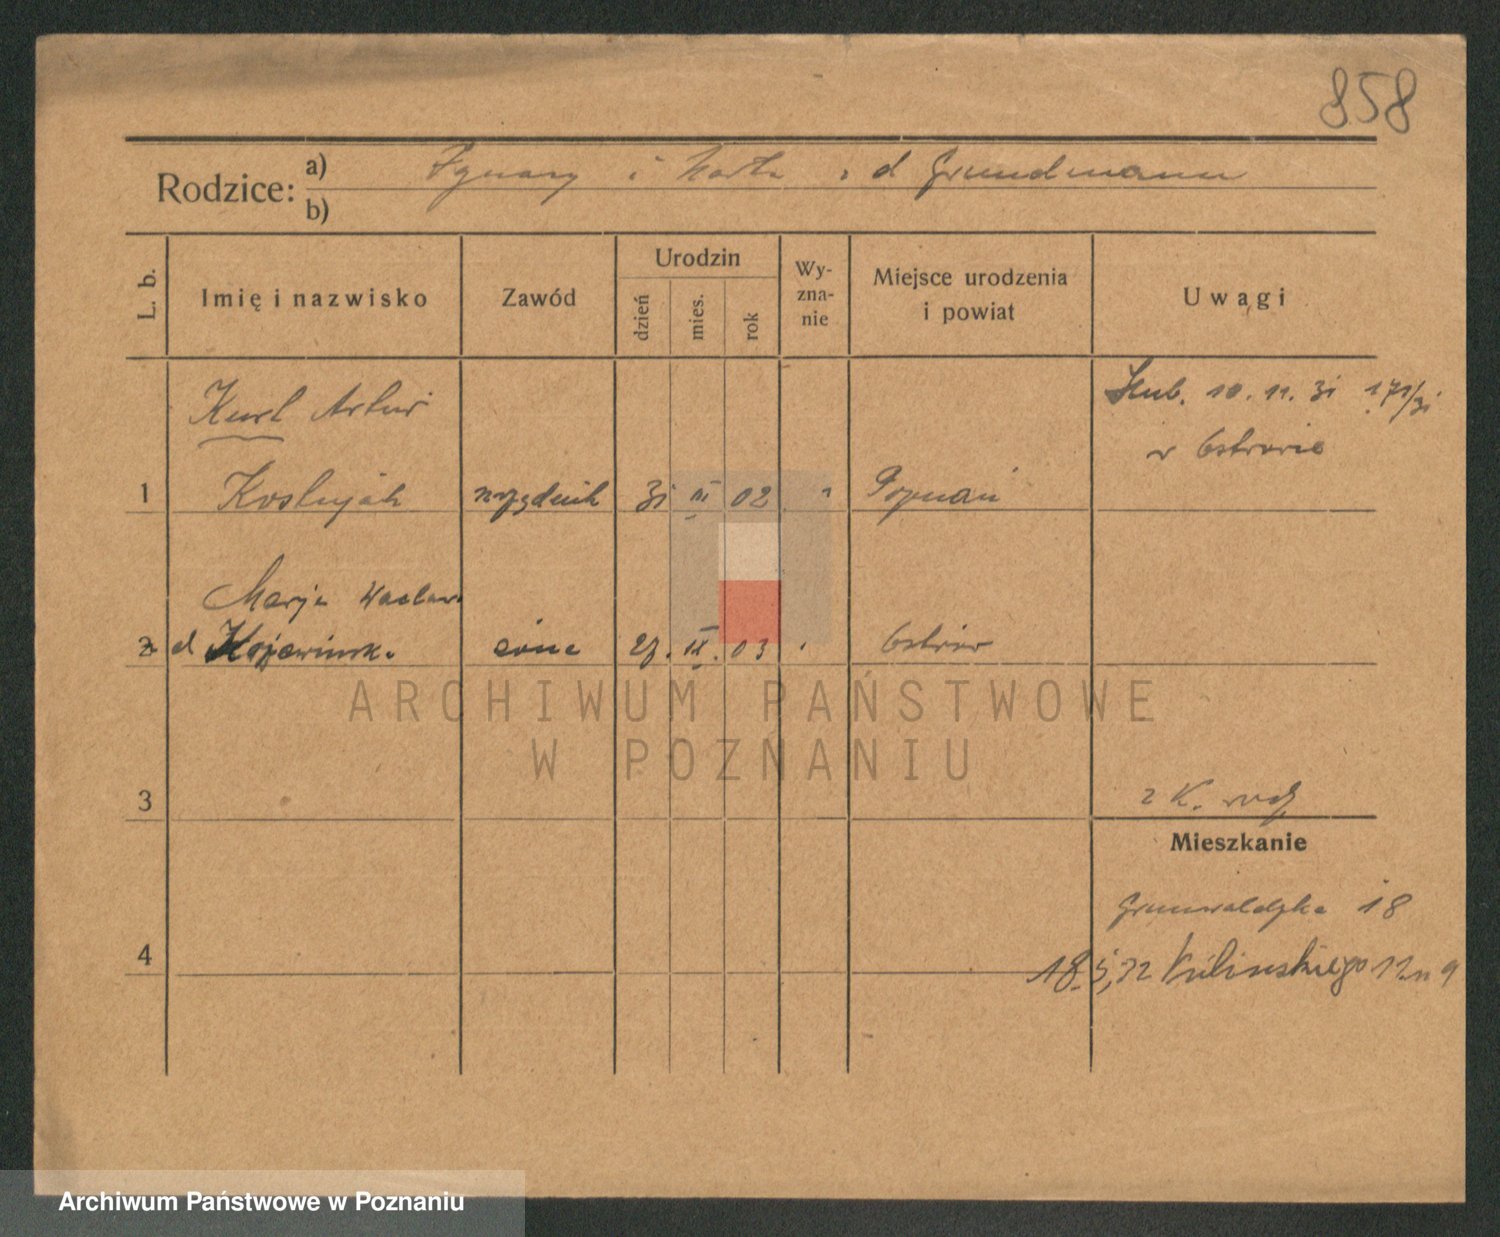 858
Rodzice: a) Ignacy i d Grundmann
b)
L. b.
Imię i nazwisko
Zawód
Urodzin
dzień
mies.
rok
Wy-
zna-
nie
Miejsce urodzenia
i powiat
Uwagi
Kurt Artur
Ślub. 10. 11. 31 171/31
w Ostrowie
1 urzędnik 31 02 " Poznań
Marja Wacława
2 d żona 27. IX. 03 Ostrów
3 z K. rodz
Mieszkanie
Grunwaldzka 18
4
18.5,32 Kilińskiego 12 m 9
ARCHIWUM PAŃSTWOWE
W POZNANIU
Archiwum Państwowe w Poznaniu